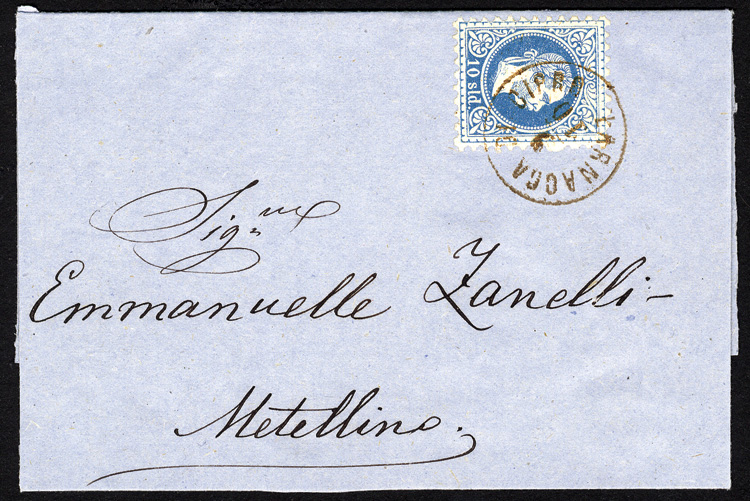 10 sld.
Sig.re
Emmanuelle Zanelli -
Metellino.